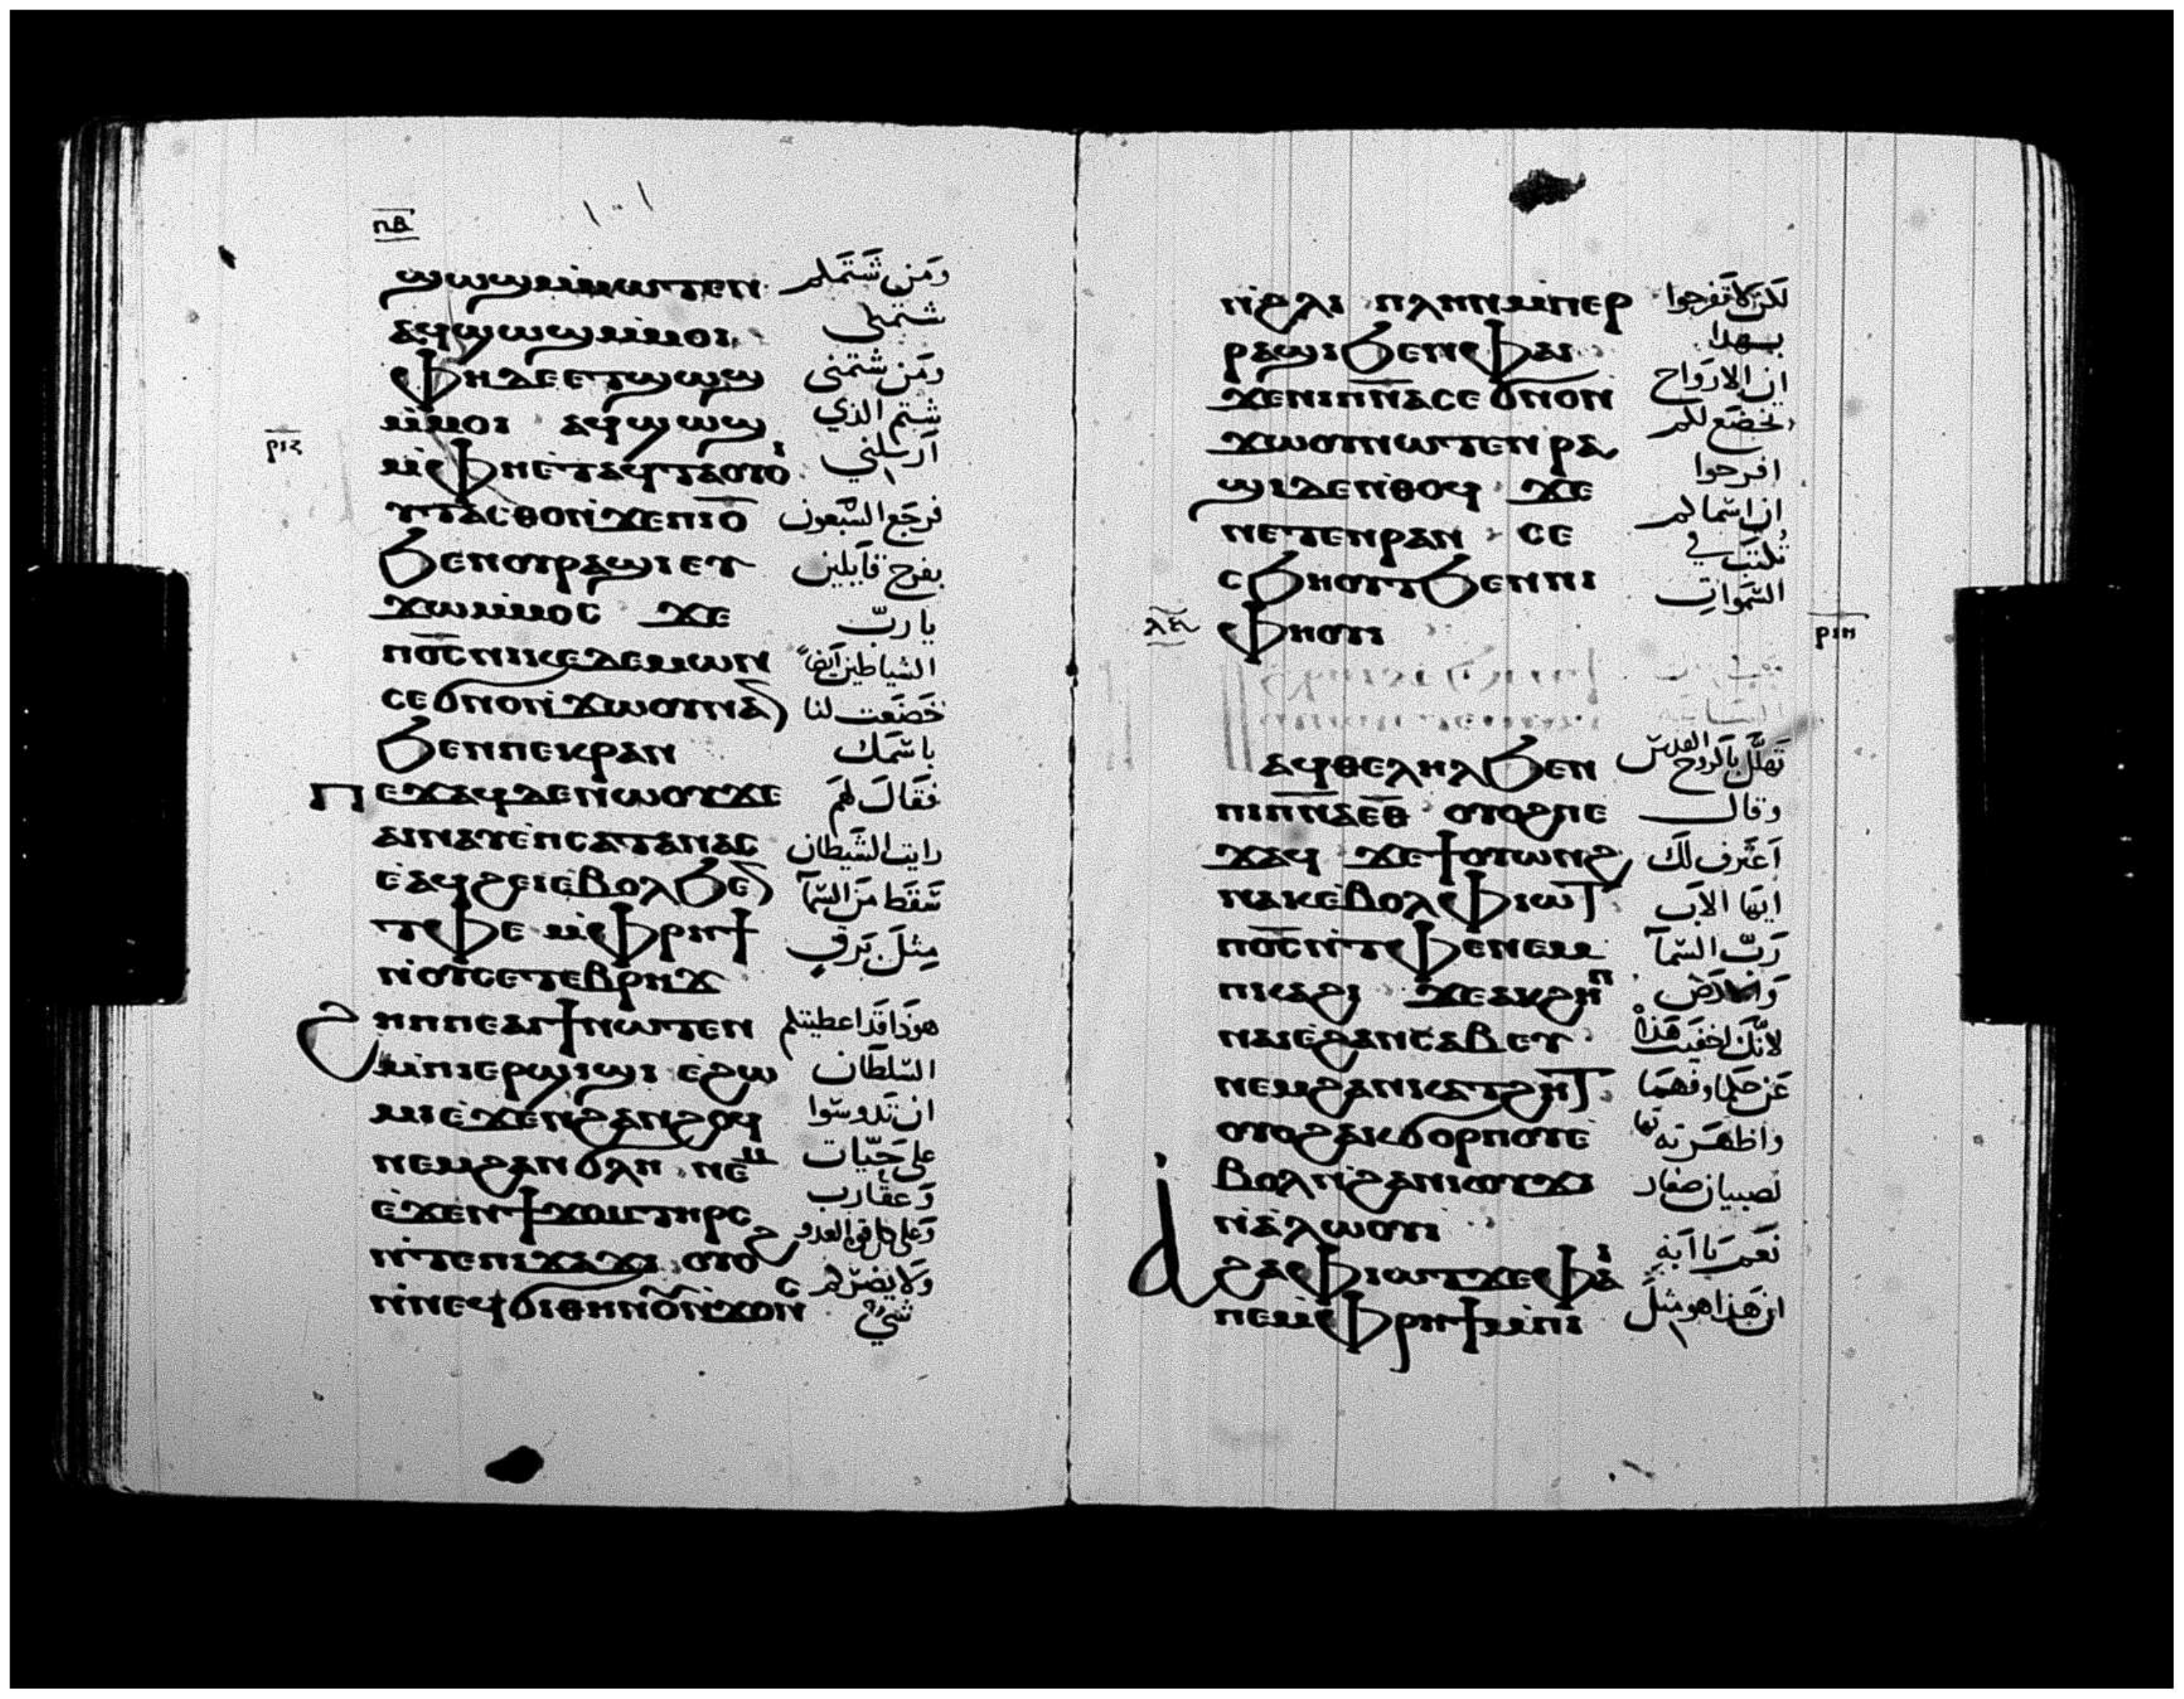 ⲡⲃ
ϣⲱϣⲙ̇ⲙⲱⲧⲉⲛ وَمَن شَتَمَكم
ⲁϥϣⲱϣⲙ̇ⲙⲟⲓ شتمني
ⲫⲏⲇⲉⲉⲧϣⲱϣ ومَن شتمنى
ⲙ̇ⲙⲟⲓ ⲁϥϣⲱϣ شتم الذي
ⲣⲓⲍ
ⲙ̇ⲫⲏⲉ̇ⲧⲁϥⲧⲁⲟⲩⲟ̇ⲓ ارسلني
ⲩⲧⲁⲥⲑⲟⲛ̇ϫⲉⲡⲓⲟ̅ فرجَع السّبعون
ϧⲉⲛⲟⲩⲣⲁϣⲓⲉⲩ بفرح قايلين
ϫⲱⲙ̇ⲙⲟⲥ ϫⲉ يا ربّ
ⲡⲟ̅ⲥ̅ⲛⲓⲕⲉⲇⲉⲙⲱⲛ الشياطين ايضاً
ⲥⲉϭⲛⲟⲛ̇ϫⲱⲟⲩⲛⲁ خضَعت لنا
ϧⲉⲛⲡⲉⲕⲣⲁⲛ باسمك
ⲡⲉϫⲁϥⲇⲉⲛⲱⲟⲩϫⲉ فقالَ لهم
ⲁⲓⲛⲁⲩⲉ̇ⲡⲥⲁⲧⲁⲛⲁⲥ رايت الشيطان
ⲉ̇ⲁϥϩⲉⲓⲉ̇ⲃⲟⲗϧⲉ سَقطَ مَن السّمآ
ⲧⲫⲉ ⲙ̇ⲫⲣⲏϯ مثلَ بَرقٍ
ⲛ̇ⲟⲩⲥⲉⲧⲉⲃⲣⲏϫ
ϩⲏⲡⲡⲉⲁⲓϯⲛⲱⲧⲉⲛ هوذا قد اعطيتكم
ⲙ̇ⲡⲓⲉⲣϣⲓϣⲓ ⲉϩⲱ السّلطان
ⲙⲓⲉ̇ϫⲉⲛϩⲁⲛϩⲟϥ ان تدوسوا
ⲛⲉⲙϩⲁⲛϭⲗⲏ ⲛⲉⲙ على حيّات
ⲉ̇ϫⲉⲛϯϫⲟⲙⲧⲏⲣⲥ وَعقارب
ⲛ̇ⲧⲉⲡⲓϫⲁϫⲓ ⲟⲩⲟϩ وَعلى كل قوة العدو
ⲛ̇ⲛⲉϥϭⲓⲑⲏⲛⲟⲩⲛ̇ϫⲟⲛⲥ ولا يضرّكم شيءٌ
ⲛ̇ϩⲗⲓ ⲡⲗⲏⲛⲙ̇ⲡⲉⲣ لكن لا تفرحوا
ⲣⲁϣⲓϧⲉⲛⲫⲁⲓ بهذا
ϫⲉⲛⲓⲡ̅ⲛ̅ⲁⲥⲉϭⲛⲟⲛ ان الارواح
ϫⲱⲟⲩⲛⲱⲧⲉⲛⲣⲁ تخضَع لكم
ϣⲓⲇⲉⲛ̇ⲑⲟϥ ϫⲉ افرحوا
ⲛⲉⲧⲉⲛⲣⲁⲛ ⲥⲉ ان اسماكم
ⲥϧⲏⲟⲩⲧϧⲉⲛⲛⲓ تكتب في
ⲫⲏⲟⲩⲓ السّموات
ⲣⲓⲏ
ⲁϥⲑⲉⲗⲏⲗϧⲉⲛ تهلّل بالروح القدس
ⲡⲓⲡ̅ⲛ̅ⲁⲉ̅ⲑ̅ ⲟⲩⲟϩⲡⲉ وقال
ϫⲁϥ ϫⲉϯⲟⲩⲱⲛϩ اعترف لك
ⲛⲁⲕⲉ̇ⲃⲟⲗⲫⲓⲱⲧ ايها الآب
ⲡⲟ̅ⲥ̅ⲛ̇ⲧⲉⲧⲫⲉⲛⲉⲙ رَبّ السّمآ
ⲡⲓⲕⲁϩⲓ ϫⲉⲁⲕϩⲏⲡ والارض
ⲛⲁⲓⲉ̇ϩⲁⲛⲥⲁⲃⲉⲩ لانّك اخفيت هذا
ⲛⲉⲙϩⲁⲛⲕⲁⲧϩⲏⲧ عَن حكما وفهما
ⲟⲩⲟϩⲁⲕϭⲟⲣⲡⲟⲩⲉ واظهَرته
ⲃⲟⲗⲛ̇ϩⲁⲛⲕⲟⲩϫⲓ لصبيان صغار
ⲛ̇ⲁ̇ⲗⲱⲟⲩⲓ
ⲁϩⲁⲫⲓⲱⲧϫⲉⲫⲁⲓ نعَم يا ابة
ⲡⲉⲙ̇ⲫⲣⲏϯⲙ̇ⲡⲓ ان هَذا هو مثل